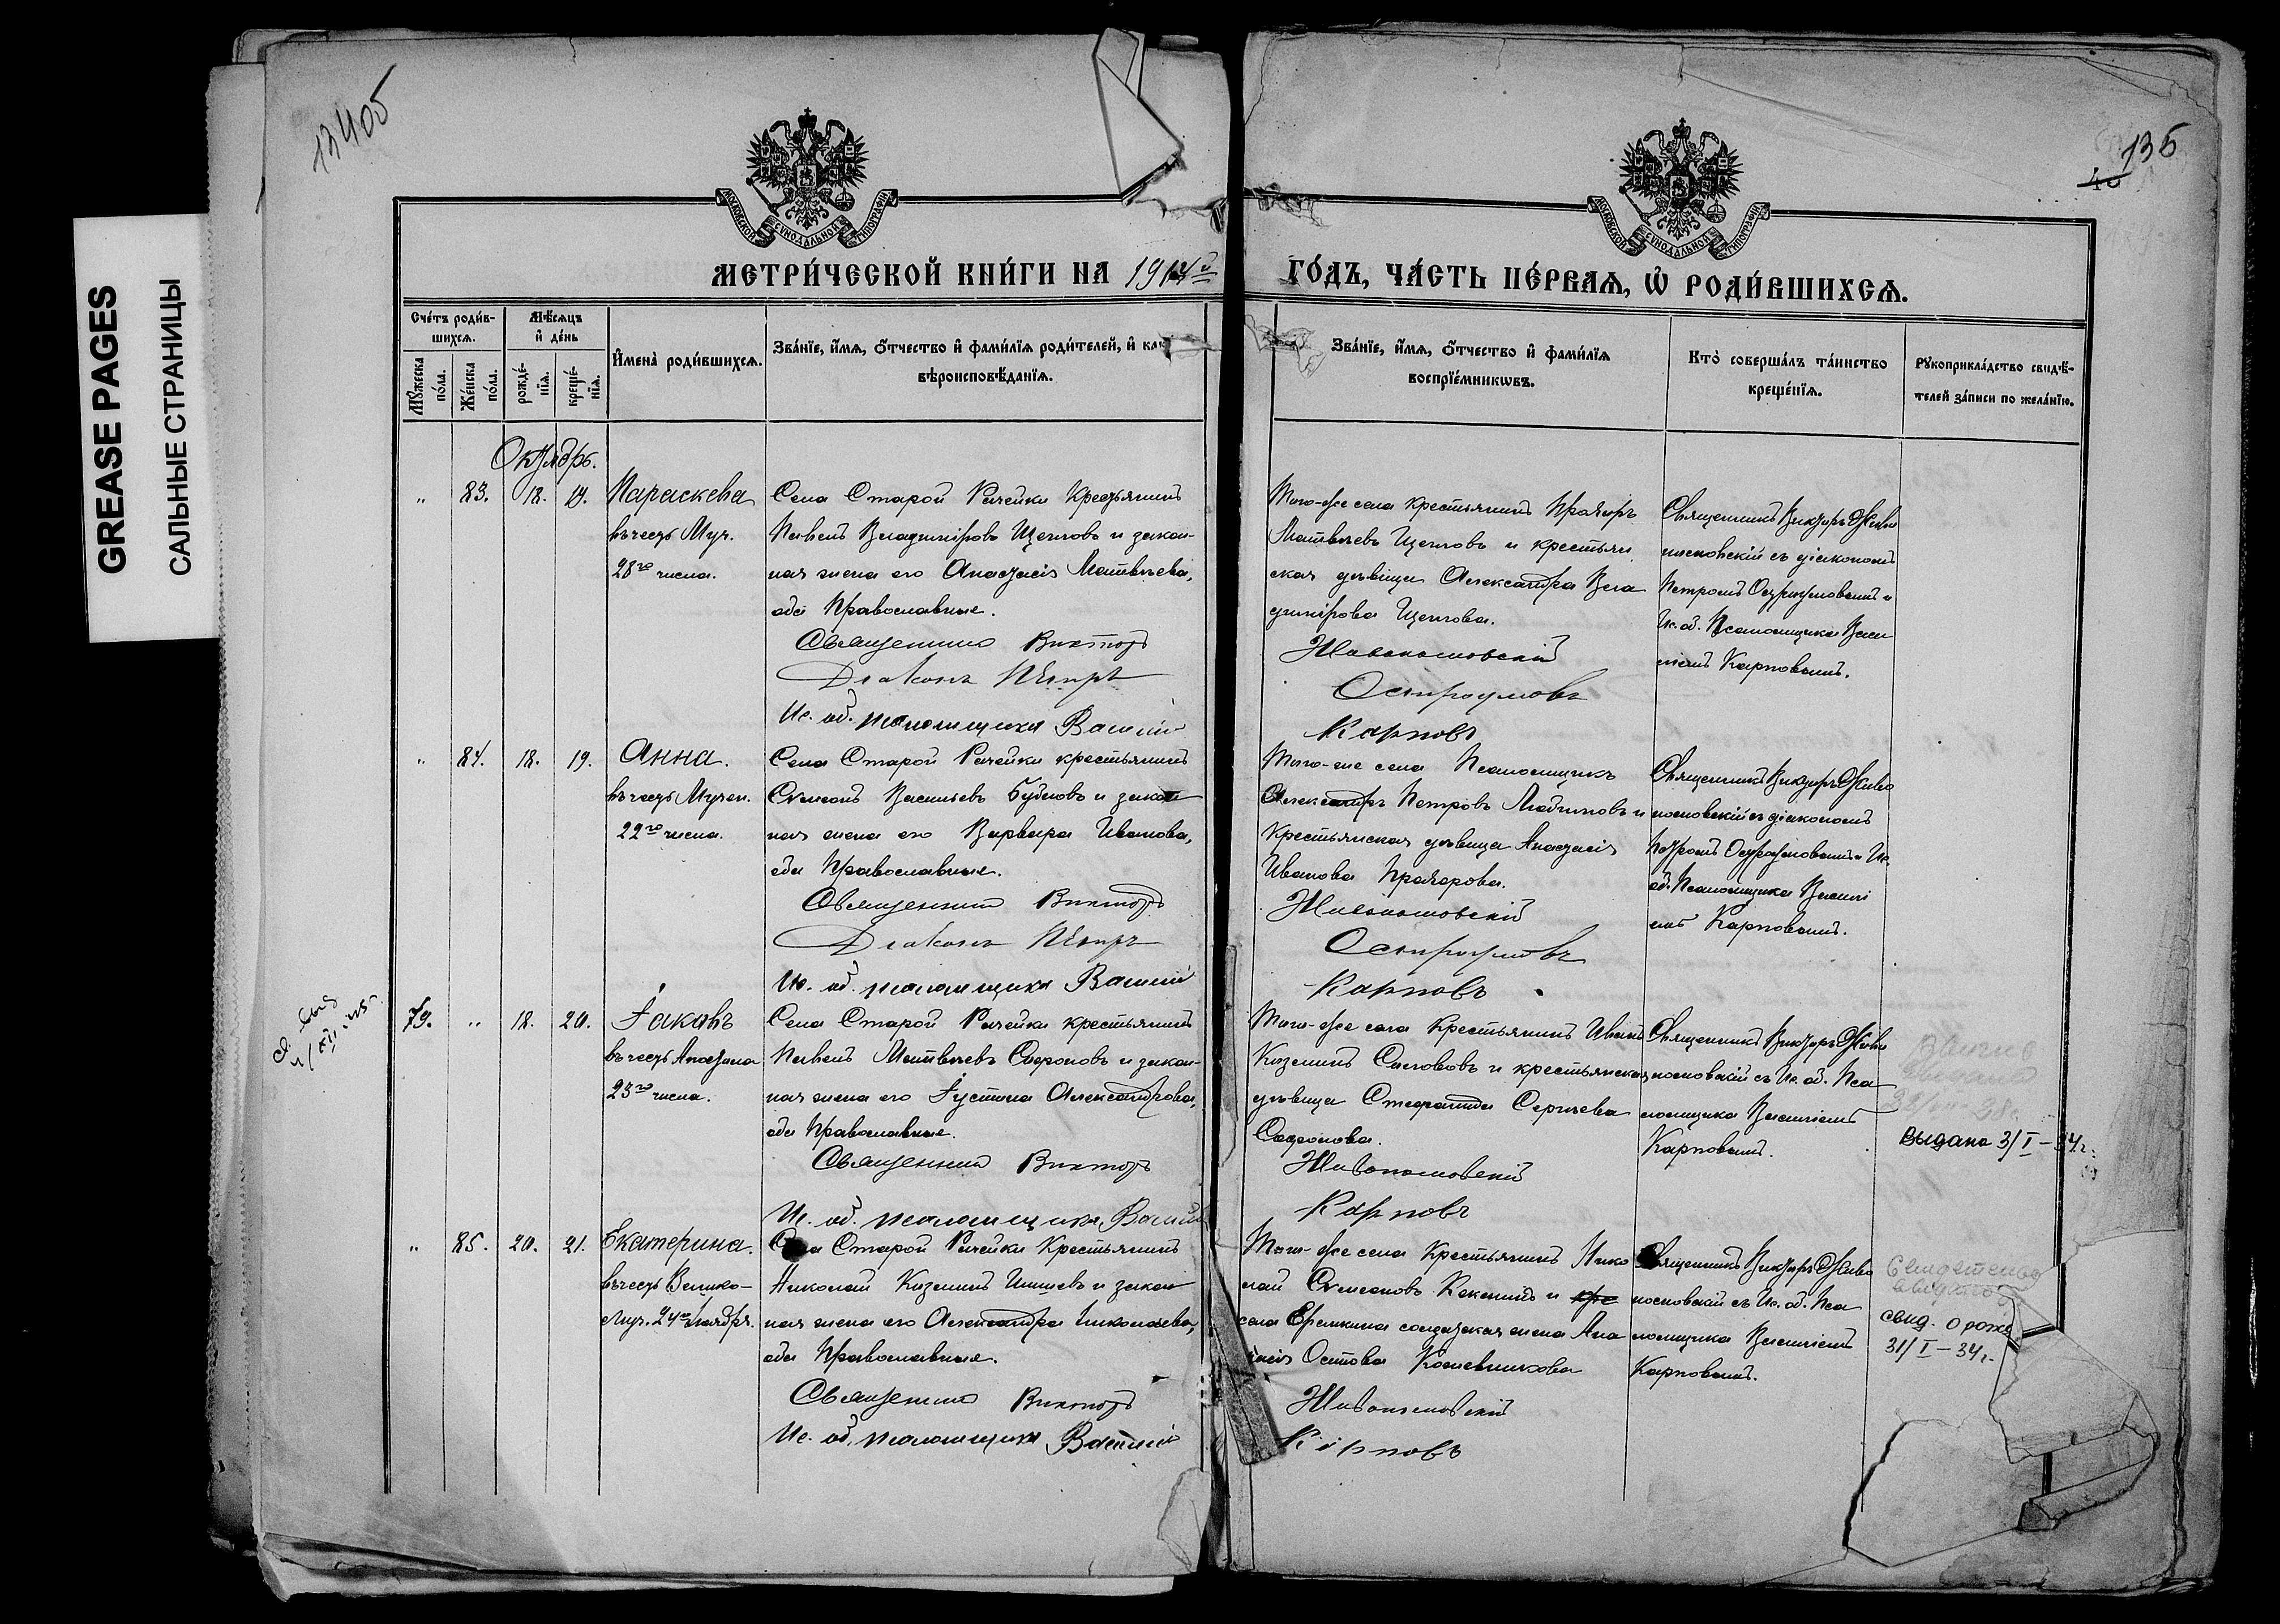 GREASE PAGES
САЛЬНЫЕ СТРАНИЦЫ
13405
136
МОСКОВСКОЙ СУНОДАЛЬНОЙ ТИПОГРАФІИ
МОСКОВСКОЙ СУНОДАЛЬНОЙ ТИПОГРАФІИ
МЕТРИ́ЧЕСКОЙ КНИ́ГИ НА 1914й
ГО́ДЪ, ЧА́СТЬ ПЕ́РВАѦ, Ѡ҆ РОДИ́ВШИХСѦ.
Сче́тъ роди́в-
шихсѧ.
Мѣ́сѧцъ
и҆ де́нь
Мꙋ́жеска
по́ла.
Же́нска
по́ла.
рожде́-
нїѧ.
креще́-
нїѧ.
И҆мена̀ роди́вшихсѧ.
Зва́нїе, и҆́мѧ, ѻ҆́тчество и҆ фами́лїѧ роди́телей, и҆ ка
вѣроисповѣ́данїѧ.
Зва́нїе, и҆́мѧ, ѻ҆́тчество и҆ фами́лїѧ
воспрїе́мникѡвъ.
Кто̀ соверша́лъ та́инство
креще́нїѧ.
Рꙋкоприкла́дство свидѣ́-
телей за́писи по жела́нїю.
Октябрь.
" 83. 18. 19. Параскева
въ честь Муч.
28го числа.
Села Старой Рачейки крестьянинъ
Павелъ Владиміровъ Щегловъ и закон-
ная жена его Анастасія Матвѣева,
оба Православные.
Священникъ Викторъ
Діаконъ Петръ
Ис. об. псаломщика Василій
Того-же села крестьянинъ Прохоръ
Матвѣевъ Щегловъ и крестьян
ская дѣвица Александра Вла
димірова Щеглова.
Живописовскій
Остроумовъ
Карповъ
Священникъ Викторъ Живо
писовскій съ діакономъ
Петромъ Остроумовымъ и
Ис. об. Псаломщика Васи
ліемъ Карповымъ.
" 84. 18. 19. Анна.
въ честь Мучен.
22го числа.
Села Старой Рачейки крестьянинъ
Симеонъ Васильевъ Будиловъ и закон
ная жена его Варвара Иванова,
оба Православные.
Священникъ Викторъ
Діаконъ Петръ
Ис. об. псаломщика Василій
Того-же села Псаломщикъ
Александръ Петровъ и
крестьянская дѣвица Анастасія
Иванова Прохорова.
Живописовскій
Остроумовъ
Карповъ
Священникъ Викторъ Живо
писовскій съ діакономъ
Петромъ Остроумовымъ и Ис.
об. Псаломщика Василі
емъ Карповымъ.
79. " 18. 20. Іаковъ
въ честь Апостола
23го числа.
Села Старой Рачейки крестьянинъ
Павелъ Матвѣевъ Сафроновъ и закон-
ная жена его Іустина Александрова,
оба Православные.
Священникъ Викторъ
Ис. об. псаломщика Василій
Того-же села Крестьянинъ Иванъ
Козьминъ и крестьянская
дѣвица Стефанида Сергѣева
Сафронова.
Живописовскій
Карповъ
Священникъ Викторъ Живо
писовскій съ Ис. об. Пса
ломщика Василіемъ
Карповымъ.
выдано 3/I – 34г.
" 85. 20. 21. Екатерина.
въ честь Велико-
муч. 24го Ноября.
Села Старой Рачейки Крестьянинъ
Николай Козьминъ и закон
ная жена его Александра Николаева,
оба Православные.
Священникъ Викторъ
Ис. об. псаломщика Василій
Того-же села Крестьянинъ Нико
лай Симеоновъ и
села Еремкина солдатская жена Ана
Кожевникова
Живописовскій
Карповъ
Священникъ Викторъ Живо
писовскій съ Ис. об. Пса
ломщика Василіемъ
Карповымъ.
свид. о рожд
31/I – 34г.